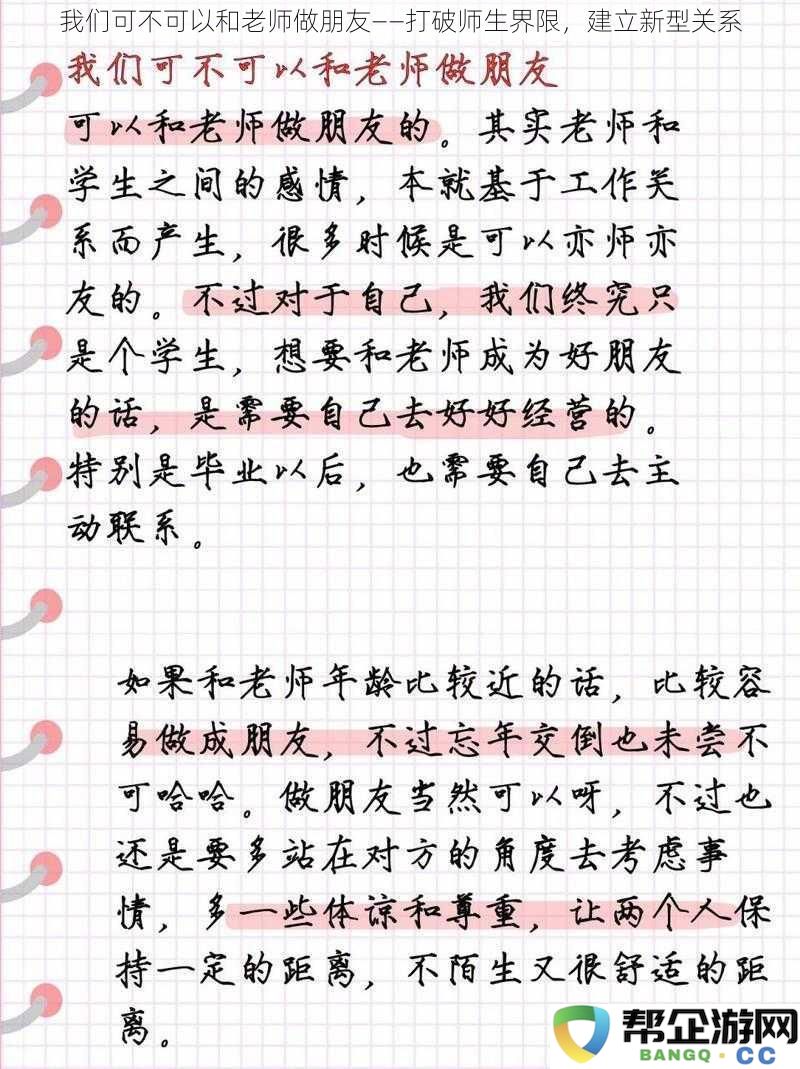 我们可不可以和老师做朋友——打破师生界限，建立新型关系
我们可不可以和老师做朋友
可以和老师做朋友的。其实老师和
学生之间的感情，本就基于工作关
系而产生，很多时候是可以亦师亦
友的。不过对于自己，我们终究只
是个学生，想要和老师成为好朋友
的话，是需要自己去好好经营的。
特别是毕业以后，也需要自己去主
动联系。
如果和老师年龄比较近的话，比较容
易做成朋友，不过忘年交倒也未尝不
可哈哈。做朋友当然可以呀，不过也
还是要多站在对方的角度去考虑事
情，多一些体谅和尊重，让两个人保
持一定的距离，不陌生又很舒适的距
离。
帮企游网
BANGQ·CC